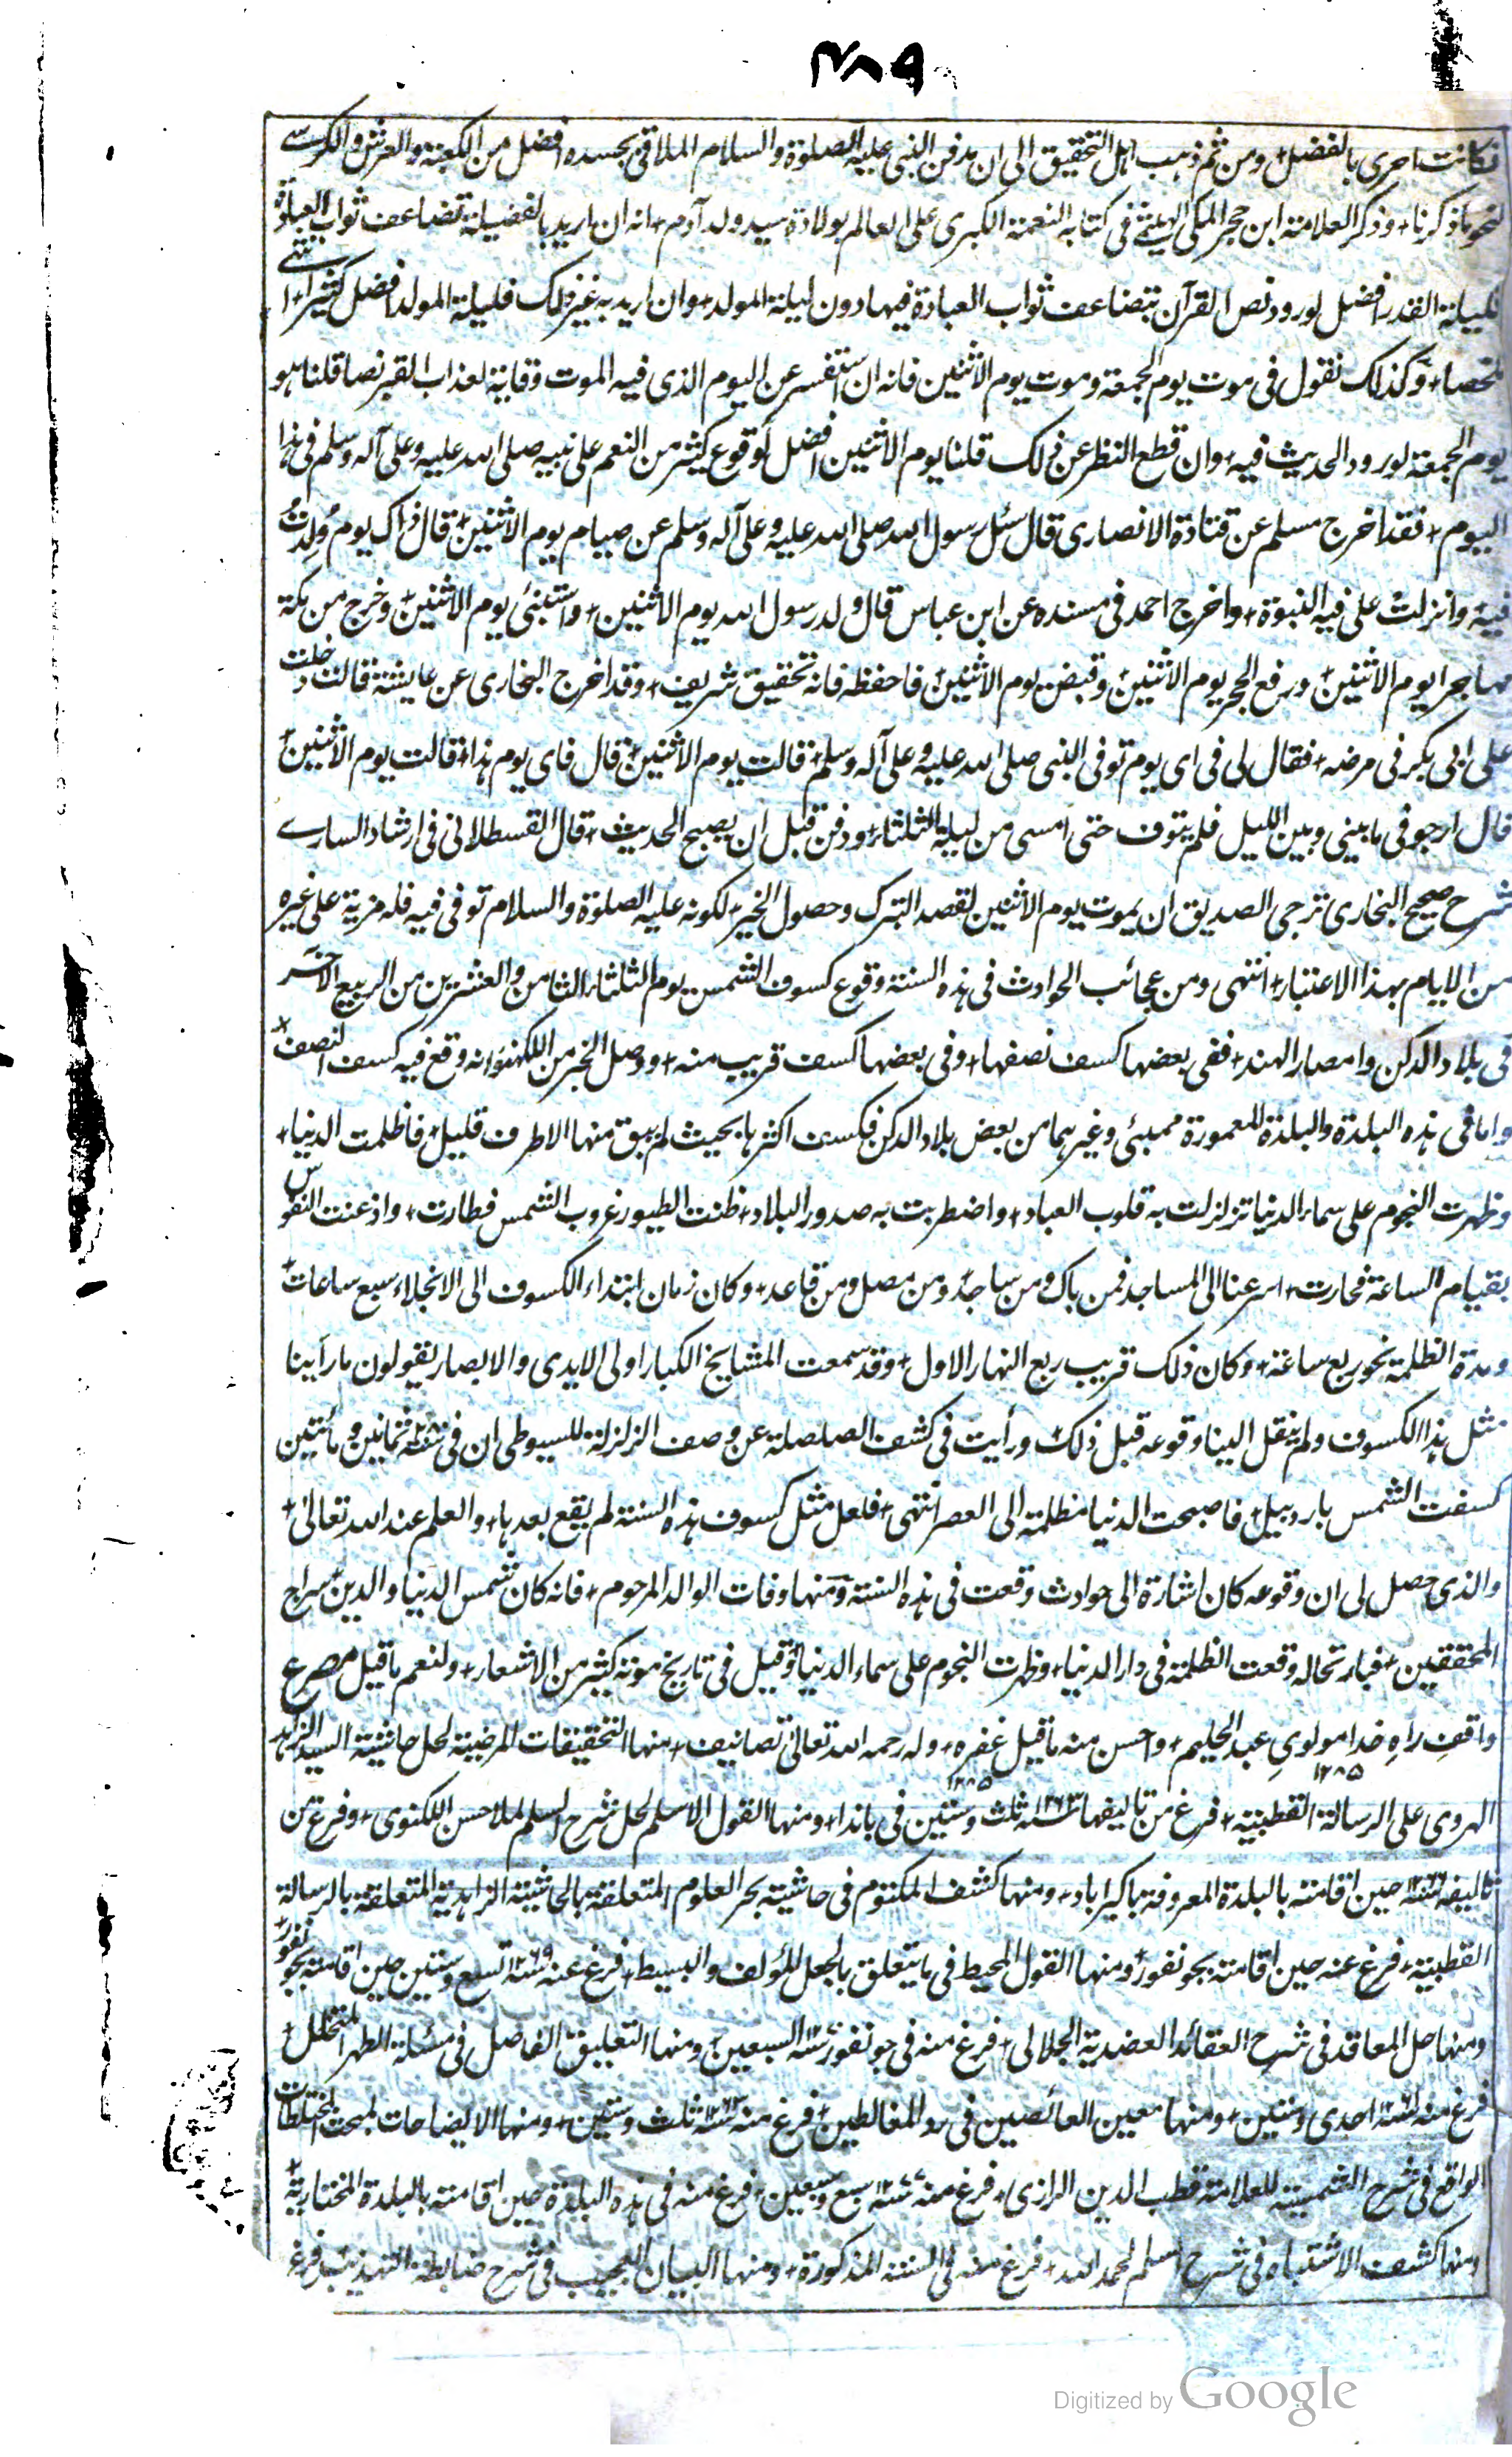 ٢٨٩
فكانت احرى بالفضل+ ومن ثم ذهب اهل التحقيق الى ان مدفن النبى عليه الصلوة والسلام الملاقى بجسده افضل من الكعبة والعرش والكرسے
نحو ما ذكرنا+ وذكر العلامة ابن حجر المكى الهيتمے فى كتابه النعمة الكبرى على العالم بولادة سيد ولد آدم+ انه ان اريد بالفضيلة تضاعف ثواب العبادة
فليلة القدر افضل لورود نص القرآن بتضاعف ثواب العبادة فيها دون ليلة المولد+ وان اريد به غير ذلك فليلة المولد افضل كثيرا+ انتهے
ملخصا+ وكذلك نقول فى موت يوم الجمعة وموت يوم الاثنين فانه ان استفسر عن اليوم الذى فيه الموت وقاية لعذاب القبر نصا قلنا هو
يوم الجمعة لورود الحديث فيه+ وان قطع النظر عن ذلك قلنا يوم الاثنين افضل لوقوع كثير من النعم على نبيه صلى الله عليه وعلى آله وسلم فى هذا
اليوم+ فقد اخرج مسلم عن قتادة الانصارى قال سئل رسول الله صلى الله عليه وعلى آله وسلم عن صيام يوم الاثنين+ قال ذاك يوم وُلدتُ
فيه+ وانزلت على فيه النبوة+ واخرج احمد فى مسنده عن ابن عباس قال ولد رسول الله يوم الاثنين+ واستنبئ يوم الاثنين+ وخرج من مكة
مهاجرا يوم الاثنين+ ورفع الحجر يوم الاثنين+ وقبض يوم الاثنين+ فاحفظه فانه تحقيق شريف+ وقد اخرج البخارى عن عايشة قالت دخلت
على ابى بكر فى مرضه+ فقال لى فى اى يوم توفى النبى صلى الله عليه وعلى آله وسلم+ قالت يوم الاثنين+ قال فاى يوم هذا+ قالت يوم الاثنين+
قال ارجو فى ما بينى وبين الليل فلم يتوف حتى امسى من ليلة الثلثاء+ ودفن قبل ان يصبح الحديث+ قال القسطلانى فى ارشاد السارے
شرح صحيح البخارى ترجى الصديق ان يموت يوم الاثنين لقصد التبرك وحصول الخير+ لكونه عليه الصلوة والسلام توفى فيه فله مزية على غيره
من الايام بهذا الاعتبار+ انتهى ومن عجائب الحوادث فى هذه السنة وقوع كسوف الشمس يوم الثلثاء الثامن والعشرين من الربيع الآخر
فى بلاد الدكن وامصار الهند+ ففى بعضها كسف نصفها+ وفى بعضها كسف قريب منه+ ووصل الخبر من اللكهنو انه وقع فيه كسف النصف+
واما فى هذه البلدة والبلدة المعمورة ممبئى وغيرهما من بعض بلاد الدكن فكسف اكثرها بحيث لم يبق منها الا طرف قليل+ فاظلمت الدنيا+
وظهرت النجوم على سماء الدنيا تزلزلت به قلوب العباد+ واضطربت به صدور البلاد+ ظنت الطيور غروب الشمس فطارت+ واذعنت النفوس
بقيام الساعة فحارت+ اسرعنا الى المساجد فمن باك ومن ساجد+ ومن مصل ومن قاعد+ وكان زمان ابتداء الكسوف الى الانجلاء سبع ساعات+
ومدة الظلمة نحو ربع ساعة+ وكان ذلك قريب ربع النهار الاول+ وقد سمعت المشايخ الكبار اولى الايدى والابصار يقولون ما رأينا
مثل هذا الكسوف ولم ينقل الينا وقوعه قبل ذلك+ ورأيت فى كشف الصلصلة عن وصف الزلزلة للسيوطى ان فى سنة ٢٨٠ ثمانين ومأتين
كسفت الشمس باردبيل+ فاصبحت الدنيا مظلمة الى العصر انتهى+ فلعل مثل كسوف هذه السنة لم يقع بعدها+ والعلم عند الله تعالى+
والذى حصل لى ان وقوعه كان اشارة الى حوادث وقعت فى هذه السنة ومنها وفات الوالد المرحوم+ فانه كان شمس الدنيا والدين+ سراج
المحققين+ فبارتحاله وقعت الظلمة فى دار الدنيا+ وظهرت النجوم على سماء الدنيا+ وقيل فى تاريخ موته كثير من الاشعار+ ولنعم ما قيل مصرع
واقفِ راهِ خدا مولوىِ عبد الحليم+ واحسن منه ما قيل غفره+ وله رحمه الله تعالى تصانيف+ منها التحقيقات المرضية لحل حاشية السيد الزاهد
١٢٨٥ ١٢٨٥
الهروى على الرسالة القطبية+ فرغ من تاليفها سنة ١٢٦٣ ثلث وستين فى باندا+ ومنها القول الاسلم لحل شرح السلم لملا حسن اللكنوى+ وفرغ من
تاليفه سنة حين اقامته بالبلدة المعروفة باكبراباد+ ومنها كشف المكتوم فى حاشية بحر العلوم المتعلقة بالحاشية الزاهدية المتعلقة بالرسالة
القطبية+ فرغ عنه حين اقامته بجونفور+ ومنها القول المحيط فى ما يتعلق بالجعل المؤلف والبسيط+ فرغ عنه سنة ١٢٦٩ تسع وستين حين اقامته بجونفور+
ومنها حل المعاقد فى شرح العقائد العضدية الجلالى+ فرغ منه فى جونفور سنة السبعين+ ومنها التعليق الفاصل فى مسئلة الطهر المتخلل+
فرغ منه سنة ١٢٦١ احدى وستين+ ومنها معين الغائصين فى رد المغالطين+ فرغ منه سنة ١٢٦٣ ثلث وستين+ ومنها الايضاحات لمبحث المختلطات
الواقع فى شرح الشمسية للعلامة قطب الدين الرازى+ فرغ منه سنة سبع وسبعين+ فرغ منه فى هذه البلدة حين اقامته بالبلدة المختارية+
ومنها كشف الاشتباه فى شرح السلم لحمد الله+ فرغ منه فى السنة المذكورة+ ومنها البيان العجيب فى شرح ضابطة التهذيب فرغ
Digitized by Google